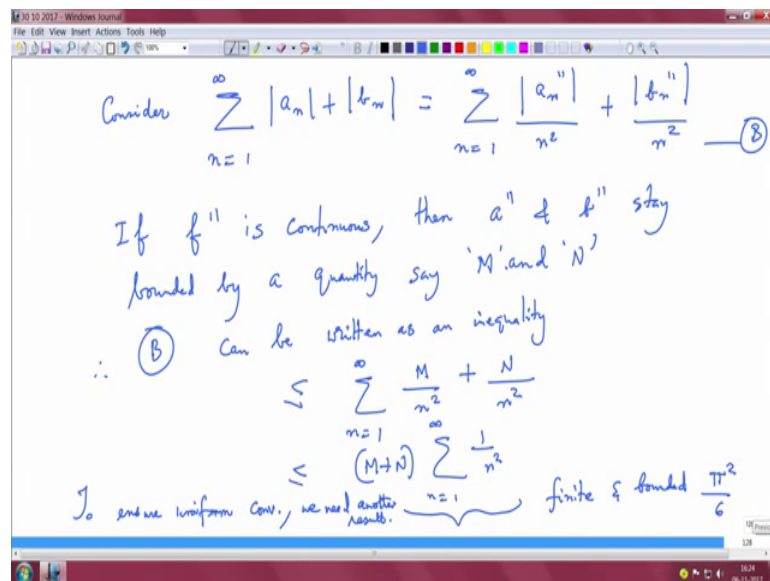 30 10 2017 - Windows Journal
File Edit View Insert Actions Tools Help
100%
Consider ∞∑n=1 |aₙ| + |bₙ| = ∞∑n=1 |aₙ''|/n² + |bₙ''|/n² — Ⓑ
If f'' is continuous, then a'' & b'' stay
bounded by a quantity say 'M' and 'N'
∴ Ⓑ can be written as an inequality
≤ ∞∑n=1 M/n² + N/n²
≤ (M+N) ∞∑n=1 1/n²
To ensure uniform conv., we need another result. finite & bounded π²/6
128
16:24
06-11-2017